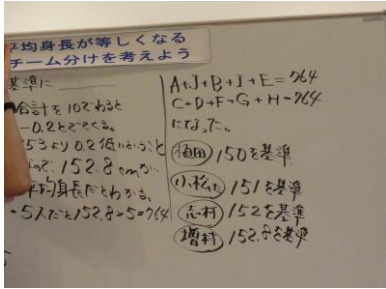 平均身長が等しくなる
チーム分けを考えよう
基準に
合計を10でわると
-0.2とでてくる。
153より0.2低いということ
なので、152.8cmが
平均身長だとわかる。
・5人だと152.8×5=764
A+J+B+I+E=764
C+D+F+G+H=764
になった。
植田 150を基準
小松 151を基準
志村 152を基準
増村 152.8を基準